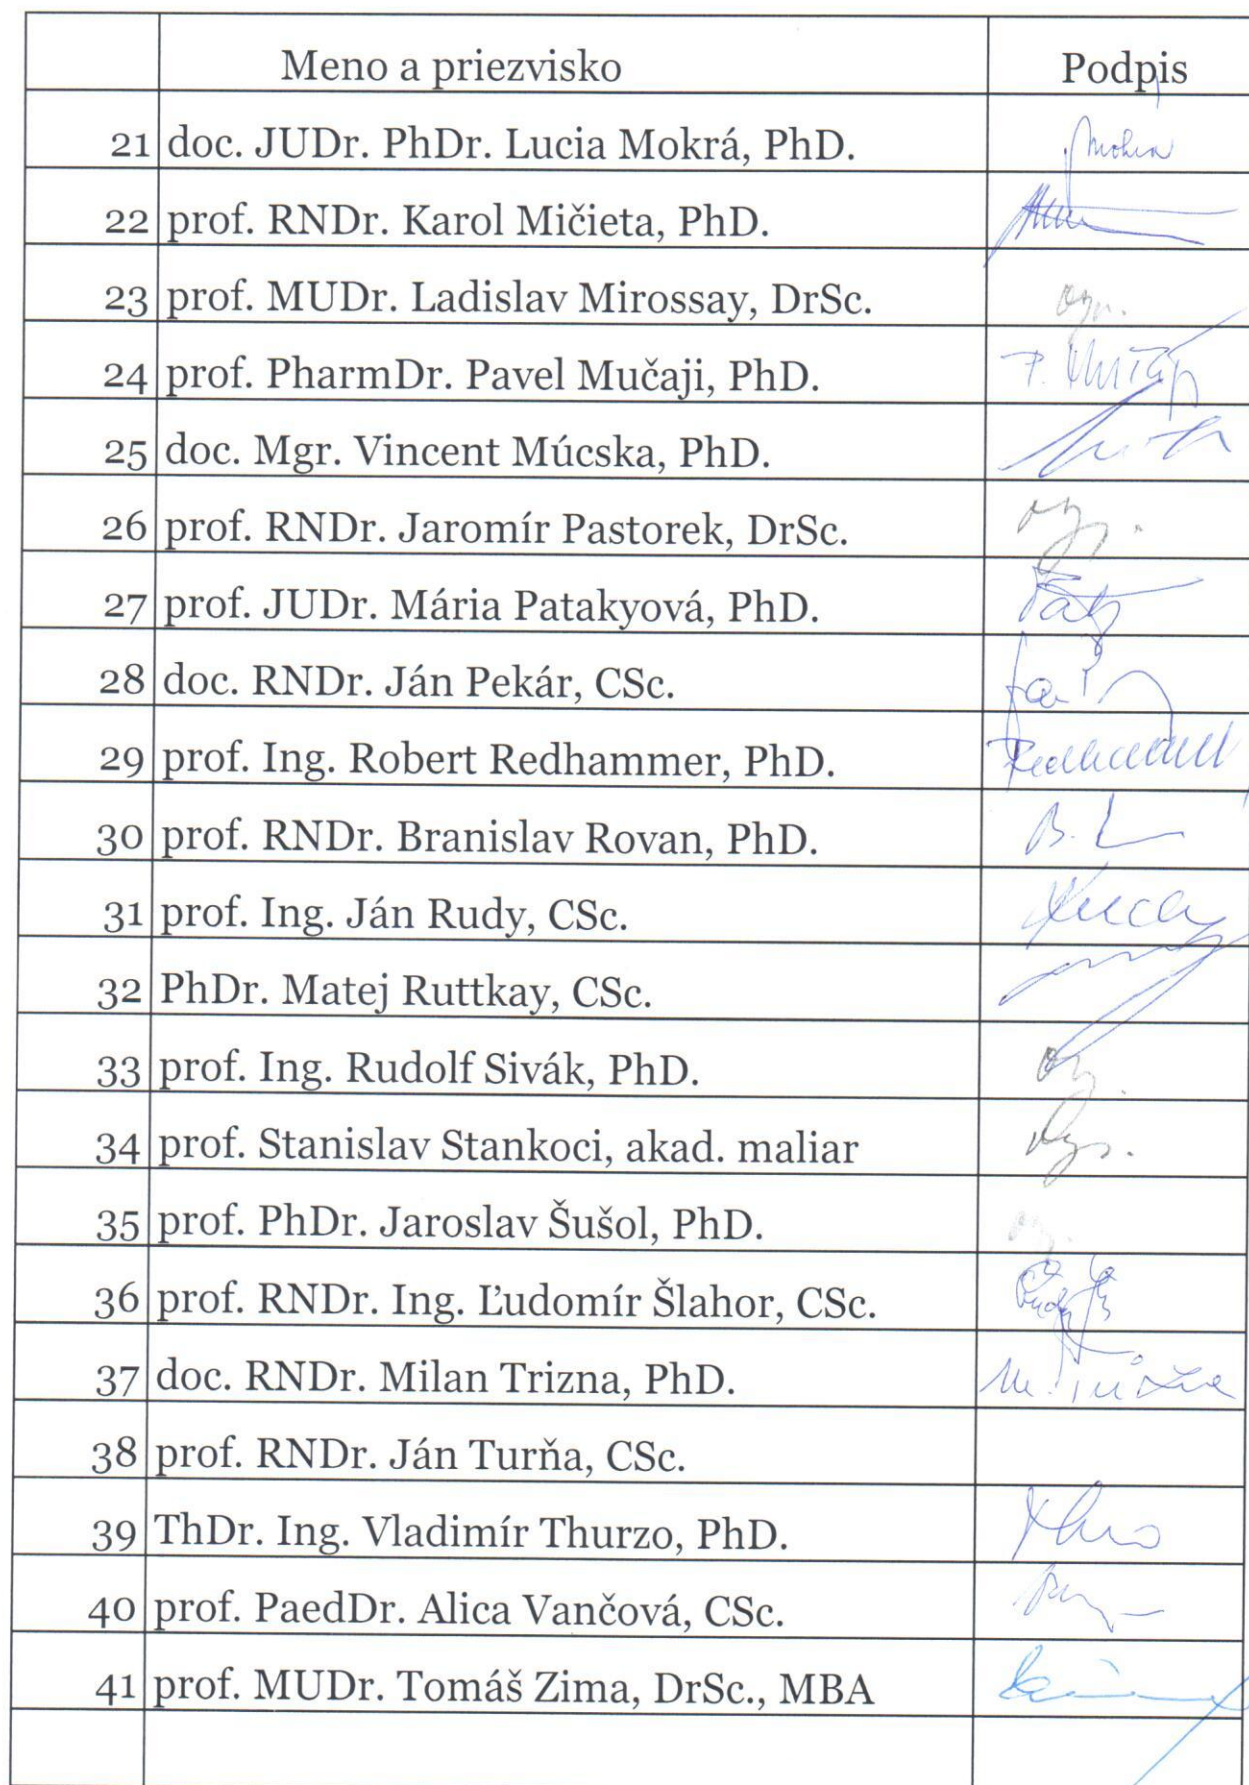 Meno a priezvisko Podpis
21 doc. JUDr. PhDr. Lucia Mokrá, PhD.
22 prof. RNDr. Karol Mičieta, PhD.
23 prof. MUDr. Ladislav Mirossay, DrSc.
24 prof. PharmDr. Pavel Mučaji, PhD.
25 doc. Mgr. Vincent Múcska, PhD.
26 prof. RNDr. Jaromír Pastorek, DrSc.
27 prof. JUDr. Mária Patakyová, PhD.
28 doc. RNDr. Ján Pekár, CSc.
29 prof. Ing. Robert Redhammer, PhD.
30 prof. RNDr. Branislav Rovan, PhD.
31 prof. Ing. Ján Rudy, CSc.
32 PhDr. Matej Ruttkay, CSc.
33 prof. Ing. Rudolf Sivák, PhD.
34 prof. Stanislav Stankoci, akad. maliar
35 prof. PhDr. Jaroslav Šušol, PhD.
36 prof. RNDr. Ing. Ľudomír Šlahor, CSc.
37 doc. RNDr. Milan Trizna, PhD.
38 prof. RNDr. Ján Turňa, CSc.
39 ThDr. Ing. Vladimír Thurzo, PhD.
40 prof. PaedDr. Alica Vančová, CSc.
41 prof. MUDr. Tomáš Zima, DrSc., MBA